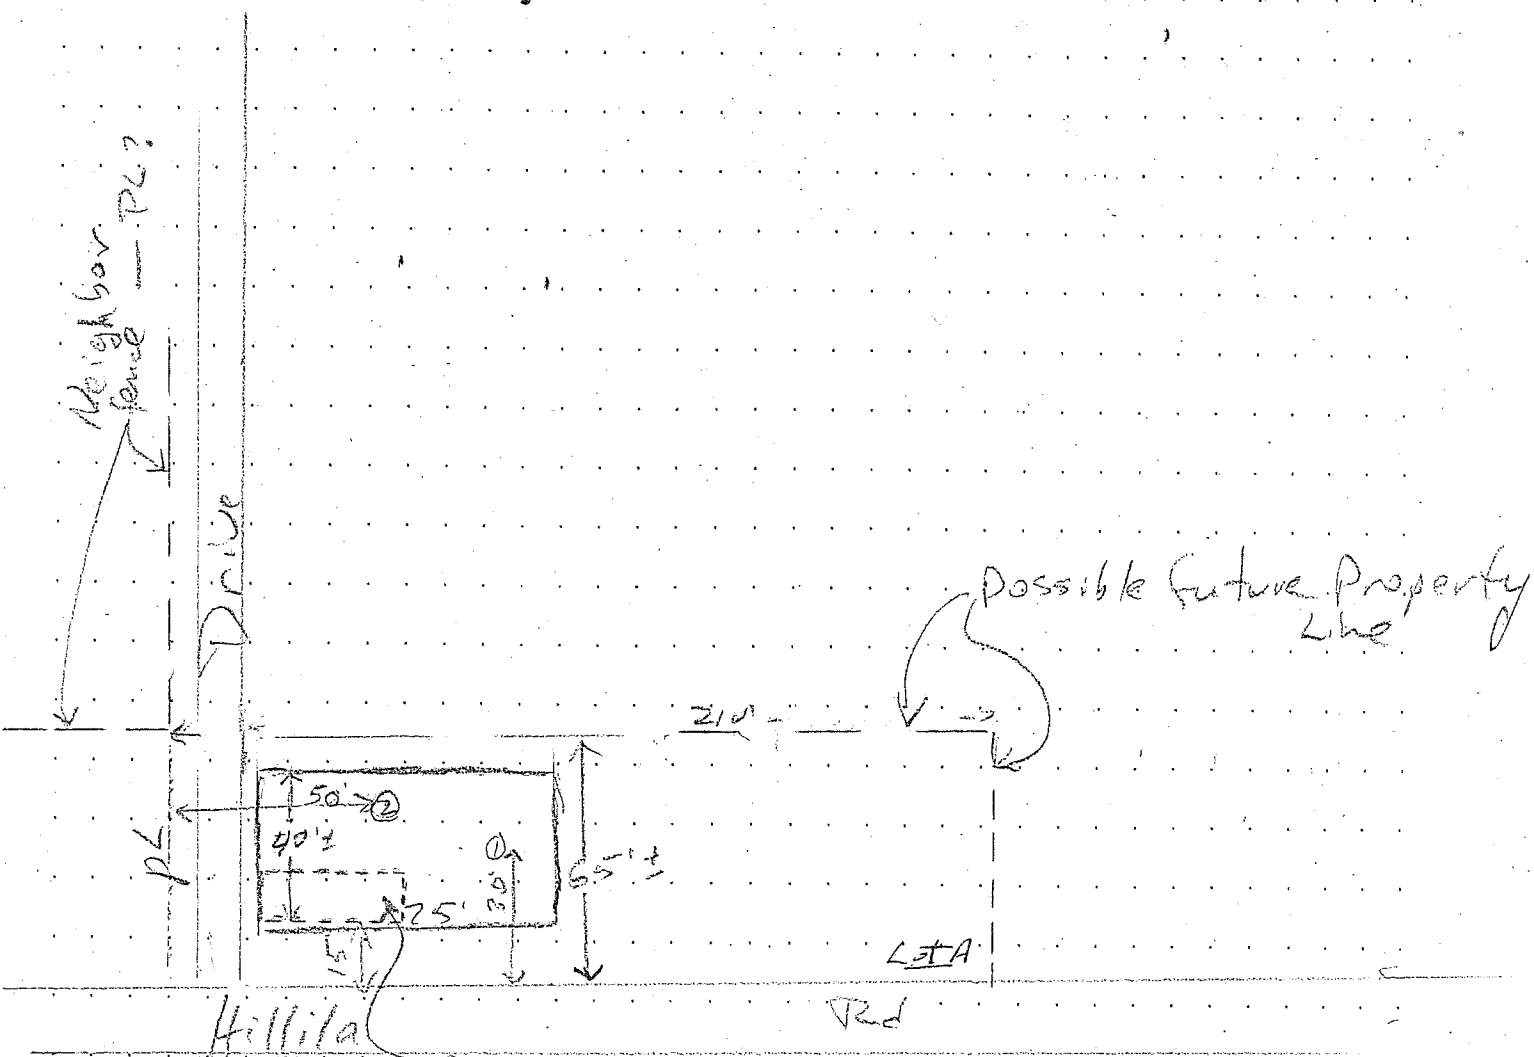 Neighbor
fence — PL?
Drive
Possible Future Property
Line
210'
50' ②
40'±
①
30'
65'±
PL
75'
15'
Lot A
Hillila
Rd